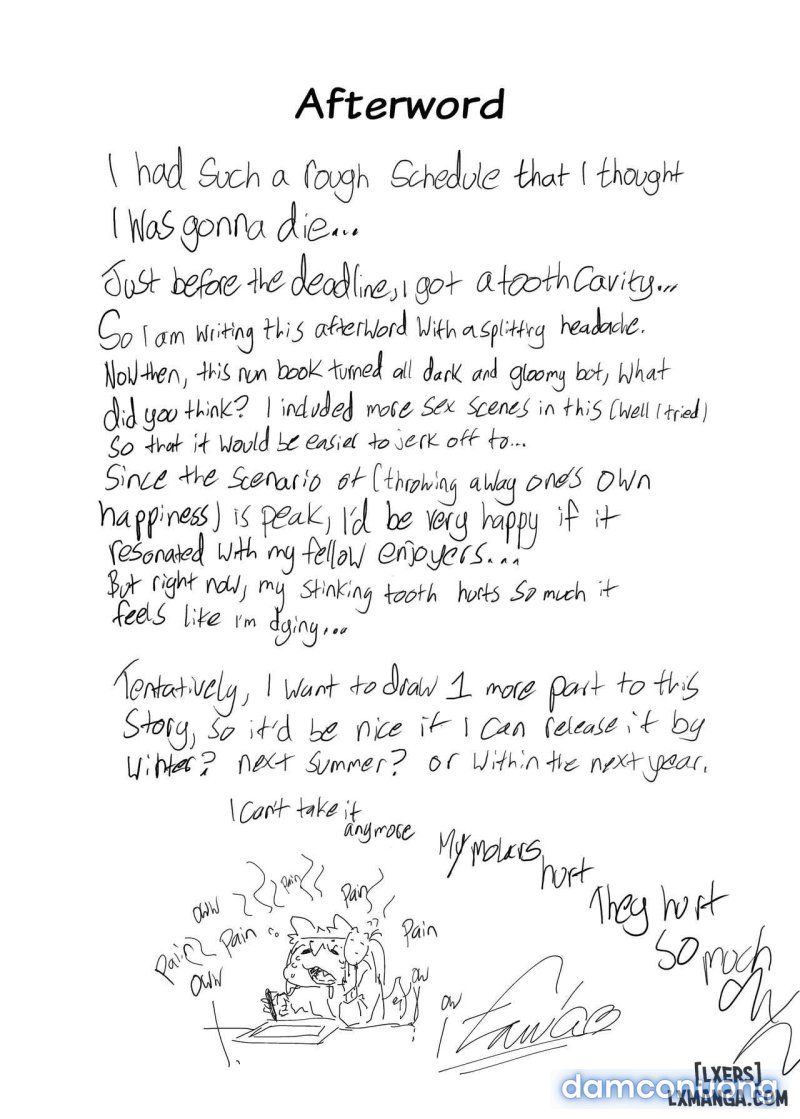 Afterword
I had such a rough schedule that I thought
I was gonna die...
Just before the deadline, I got a tooth cavity...
So I am writing this afterword with a splitting headache.
Now then, this nun book turned all dark and gloomy bot, what
did you think? I included more sex scenes in this (well I tried)
so that it would be easier to jerk off to...
Since the scenario of (throwing away one's own
happiness) is peak, I'd be very happy if it
resonated with my fellow enjoyers...
But right now, my stinking tooth hurts so much it
feels like I'm dying...
Tentatively, I want to draw 1 more part to this
story, so it'd be nice if I can release it by
winter? next summer? or within the next year.
I can't take it
anymore
My molars
hurt
They hurt
so much
Pain
Pain
Pain
oww
Pain
Pain
oww
ow
ow
[LXERS]
LXMANGA.COM